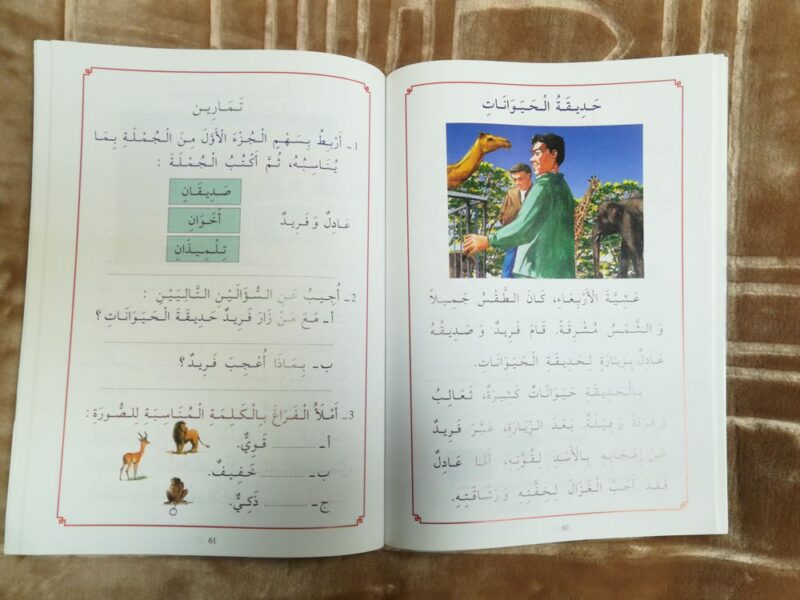 حَدِيقَةُ الْحَيَوَانَاتِ
عَشِيَّةَ الْأَرْبِعَاءِ، كَانَ الطَّقْسُ جَمِيلاً
وَ الشَّمْسُ مُشْرِقَةً. قَامَ فَرِيدٌ وَ صَدِيقُهُ
عَادِلٌ بِزِيَارَةٍ لِحَدِيقَةِ الْحَيَوَانَاتِ.
بِالْحَدِيقَةِ حَيَوَانَاتٌ كَثِيرَةٌ، ثَعَالِبُ
وَ قِرَدَةٌ وَ فِيَلَةٌ. بَعْدَ الزِّيَارَةِ، عَبَّرَ فَرِيدٌ
عَنْ إِعْجَابِهِ بِالْأَسَدِ لِقُوَّتِهِ، أَمَّا عَادِلٌ
فَقَدْ أَحَبَّ الْغَزَالَ لِخِفَّتِهِ وَ رَشَاقَتِهِ.
60
تَمَارِين
1 ـ أَرْبِطُ بِسَهْمٍ الْجُزْءَ الْأَوَّلَ مِنَ الْجُمْلَةِ بِمَا
يُنَاسِبُهُ، ثُمَّ أَكْتُبُ الْجُمْلَةَ :
صَدِيقَانِ
عَادِلٌ وَ فَرِيدٌ أَخَوَانِ
تِلْمِيذَانِ
2 ـ أُجِيبُ عَنِ السُّؤَالَيْنِ التَّالِيَيْنِ :
أ ـ مَعَ مَنْ زَارَ فَرِيدٌ حَدِيقَةَ الْحَيَوَانَاتِ ؟
ب ـ بِمَاذَا أُعْجِبَ فَرِيدٌ ؟
3 ـ أَمْلَأُ الْفَرَاغَ بِالْكَلِمَةِ الْمُنَاسِبَةِ لِلصُّورَةِ :
أ ـ ............ قَوِيٌّ.
ب ـ ............ خَفِيفٌ.
ج ـ ............ ذَكِيٌّ.
61